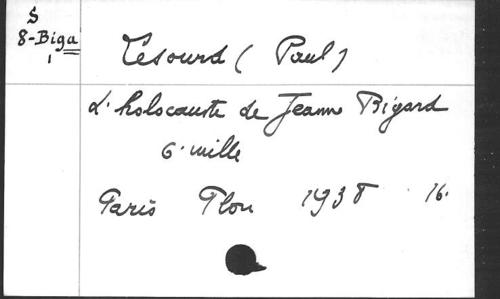 S
8-Biga
1
Lesourd (Paul)
L'holocauste de Jeanne Bigard
6e mille
Paris Plon 1938 16.